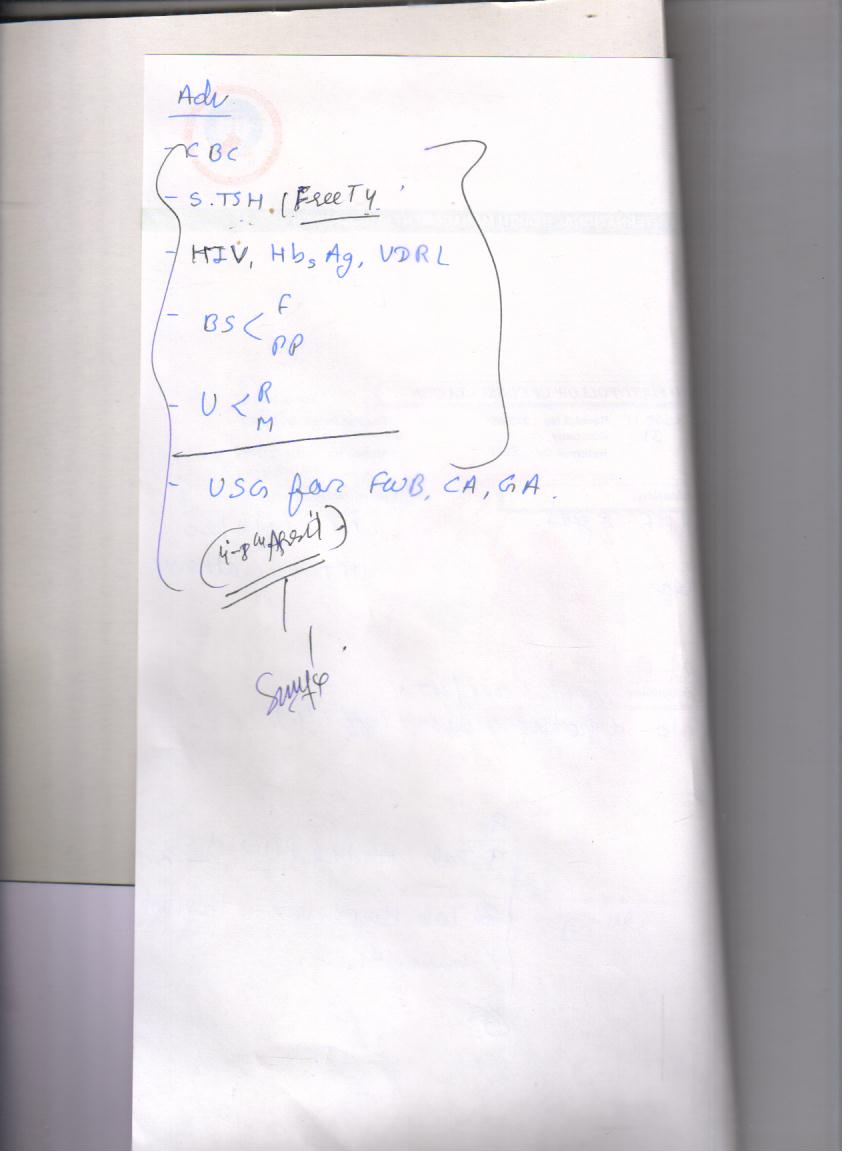 Adv
- CBC
- S.TSH / Free T4
- HIV, HbsAg, VDRL
- BS < F
PP
- U < R
M
- USG for FWB, CA, GA.